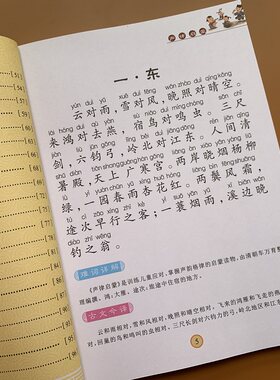 一·东
yún duì yǔ xuě duì fēng wǎn zhào duì qíng kōng
云对雨，雪对风，晚照对晴空。
lái hóng duì qù yàn sù niǎo duì míng chóng sān chǐ
来鸿对去燕，宿鸟对鸣虫。三尺
jiàn liù jūn gōng lǐng běi duì jiāng dōng rén jiān qīng
剑，六钧弓，岭北对江东。人间清
shǔ diàn tiān shàng guǎng hán gōng liǎng àn xiǎo yān yáng liǔ
暑殿，天上广寒宫。两岸晓烟杨柳
lǜ yì yuán chūn yǔ xìng huā hóng liǎng bìn fēng shuāng
绿，一园春雨杏花红。两鬓风霜，
tú cì zǎo xíng zhī kè yì suō yān yǔ xī biān wǎn
途次早行之客；一蓑烟雨，溪边晚
diào zhī wēng
钓之翁。
难词详解
《声律启蒙》是训练儿童应对、掌握声韵格律的启蒙读物，由清朝车万育
古文今译
云和雨相对，雪和风相对，晚照和晴空相对。飞来的鸿雁和飞走的燕
对，回巢的鸟和鸣叫的虫相对。三尺长剑对六钧力的弓，岭北地区和江东
5